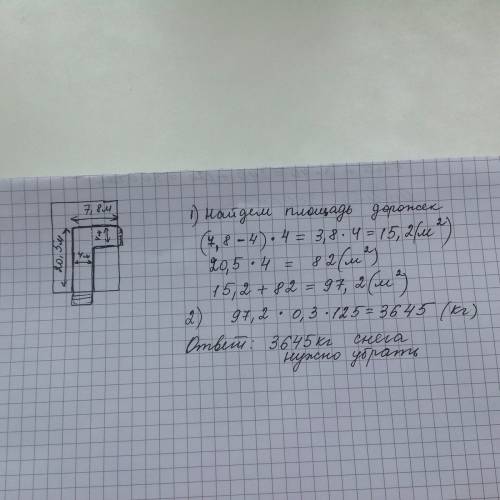 7,8м
20,5м
4м
4м
1) Найдем площадь дорожек
(7,8-4)·4 = 3,8·4 = 15,2(м²)
20,5·4 = 82(м²)
15,2 + 82 = 97,2(м²)
2) 97,2 · 0,3 · 125 = 3645 (кг)
Ответ: 3645кг снега
нужно убрать